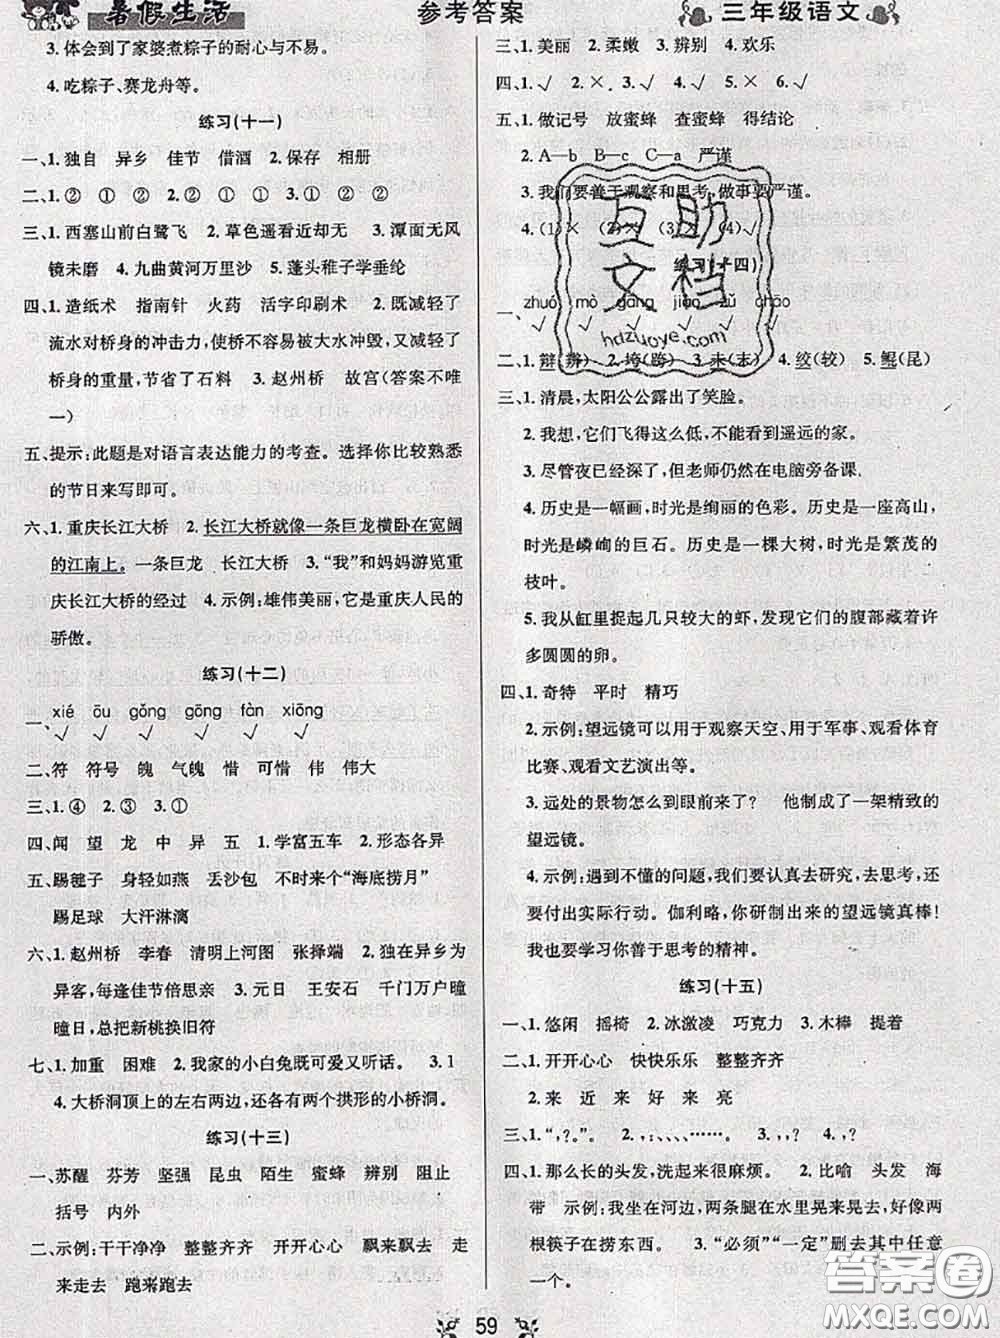 暑假生活
参考答案
三年级语文
3.体会到了家婆煮粽子的耐心与不易。
4.吃粽子、赛龙舟等。
练习(十一)
一、1.独自 异乡 佳节 借酒 2.保存 相册
二、1.② ① ② 2.① ② ②
三、1.西塞山前白鹭飞 2.草色遥看近却无 3.潭面无风
镜未磨 4.九曲黄河万里沙 5.蓬头稚子学垂纶
四、1.造纸术 指南针 火药 活字印刷术 2.既减轻了
流水对桥身的冲击力,使桥不容易被大水冲毁,又减轻了
桥身的重量,节省了石料 3.赵州桥 故宫(答案不唯
一)
五、提示:此题是对语言表达能力的考查。选择你比较熟悉
的节日来写即可。
六、1.重庆长江大桥 2.长江大桥就像一条巨龙横卧在宽阔
的江南上。一条巨龙 长江大桥 3.“我”和妈妈游览重
庆长江大桥的经过 4.示例:雄伟美丽,它是重庆人民的
骄傲。
练习(十二)
一、xié ōu gǒng gōng fàn xiōng
√ √ √ √ √ √
二、符 符号 魄 气魄 惜 可惜 伟 伟大
三、1.④ 2.③ 3.①
四、闻 望 龙 中 异 五 1.学富五车 2.形态各异
五、踢毽子 身轻如燕 丢沙包 不时来个“海底捞月”
踢足球 大汗淋漓
六、1.赵州桥 李春 清明上河图 张择端 2.独在异乡为
异客,每逢佳节倍思亲 3.元日 王安石 千门万户曈
曈日,总把新桃换旧符
七、1.加重 困难 2.我家的小白兔既可爱又听话。 3.1
4.大桥洞顶上的左右两边,还各有两个拱形的小桥洞。
练习(十三)
一、苏醒 芬芳 坚强 昆虫 陌生 蜜蜂 辨别 阻止
括号 内外
二、示例:干干净净 整整齐齐 开开心心 飘来飘去 走
来走去 跑来跑去
三、1.美丽 2.柔嫩 3.辨别 4.欢乐
四、1.√ 2.× 3.√ 4.√ 5.× 6.√
五、1.做记号 放蜜蜂 查蜜蜂 得结论
2.A—b B—c C—a 严谨
3.我们要善于观察和思考,做事要严谨。
4.(1)× (2)× (3)× (4)√
练习(十四)
一、zhuó mò gāng jiāo zǔ
√ √ √ √ √ √
二、1.辩(辨) 2.垮(跨) 3.未(末) 4.绞(较) 5.鲲(昆)
三、1.清晨,太阳公公露出了笑脸。
2.我想,它们飞得这么低,不能看到遥远的家。
3.尽管夜已经深了,但老师仍然在电脑旁备课.
4.历史是一幅画,时光是绚丽的色彩。历史是一座高山,
时光是嶙峋的巨石。历史是一棵大树,时光是繁茂的
枝叶。
5.我从缸里捉起几只较大的虾,发现它们的腹部藏着许
多圆圆的卵。
四、1.奇特 平时 精巧
2.示例:望远镜可以用于观察天空、用于军事、观看体育
比赛、观看文艺演出等。
3.远处的景物怎么到眼前来了? 他制成了一架精致的
望远镜。
4.示例:遇到不懂的问题,我们要认真去研究,去思考,还
要付出实际行动。伽利略,你研制出来的望远镜真棒!
我也要学习你善于思考的精神。
练习(十五)
一、1.悠闲 摇椅 2.冰激凌 巧克力 3.木棒 提着
二、1.开开心心 快快乐乐 整整齐齐
2.来 近 来 好 来 亮
三、1.“,?。”。 2.,:、、……。 3.,。? 4.,?
四、1.那么长的头发,洗起来很麻烦。 2.比喻 头发 海
带 示例:我坐在河边,两条腿在水里晃来晃去,好像两
根筷子在捞东西。 3.“必须”“一定”删去其中任意
一个。
59
互助
文档
hdzuoye.com
答案圈
MXQE.COM